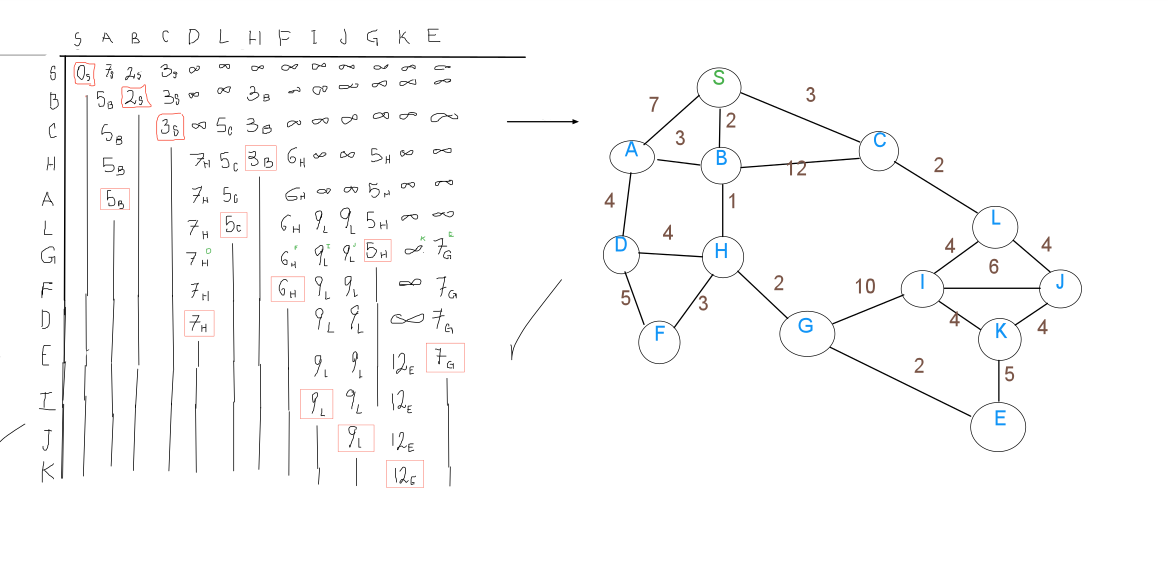 S A B C D L H F I J G K E
S 0s 7s 2s 3s ∞ ∞ ∞ ∞ ∞ ∞ ∞ ∞ ∞
B 5B 2s 3s ∞ ∞ 3B ∞ ∞ ∞ ∞ ∞ ∞
C 5B 3s ∞ 5C 3B ∞ ∞ ∞ ∞ ∞ ∞
H 5B 7H 5C 3B 6H ∞ ∞ 5H ∞ ∞
A 5B 7H 5C 6H ∞ ∞ 5H ∞ ∞
L 7H 5C 6H 9L 9L 5H ∞ ∞
G 7H D 6H F 9L I 9L J 5H ∞ K 7G E
F 7H 6H 9L 9L ∞ 7G
D 7H 9L 9L ∞ 7G
E 9L 9L 12E 7G
I 9L 9L 12E
J 9L 12E
K 12E
S
7
2
3
3
A
B
C
12
2
4
1
L
D
4
H
4
4
6
I
J
5
3
2
10
F
G
4
K
4
2
5
E